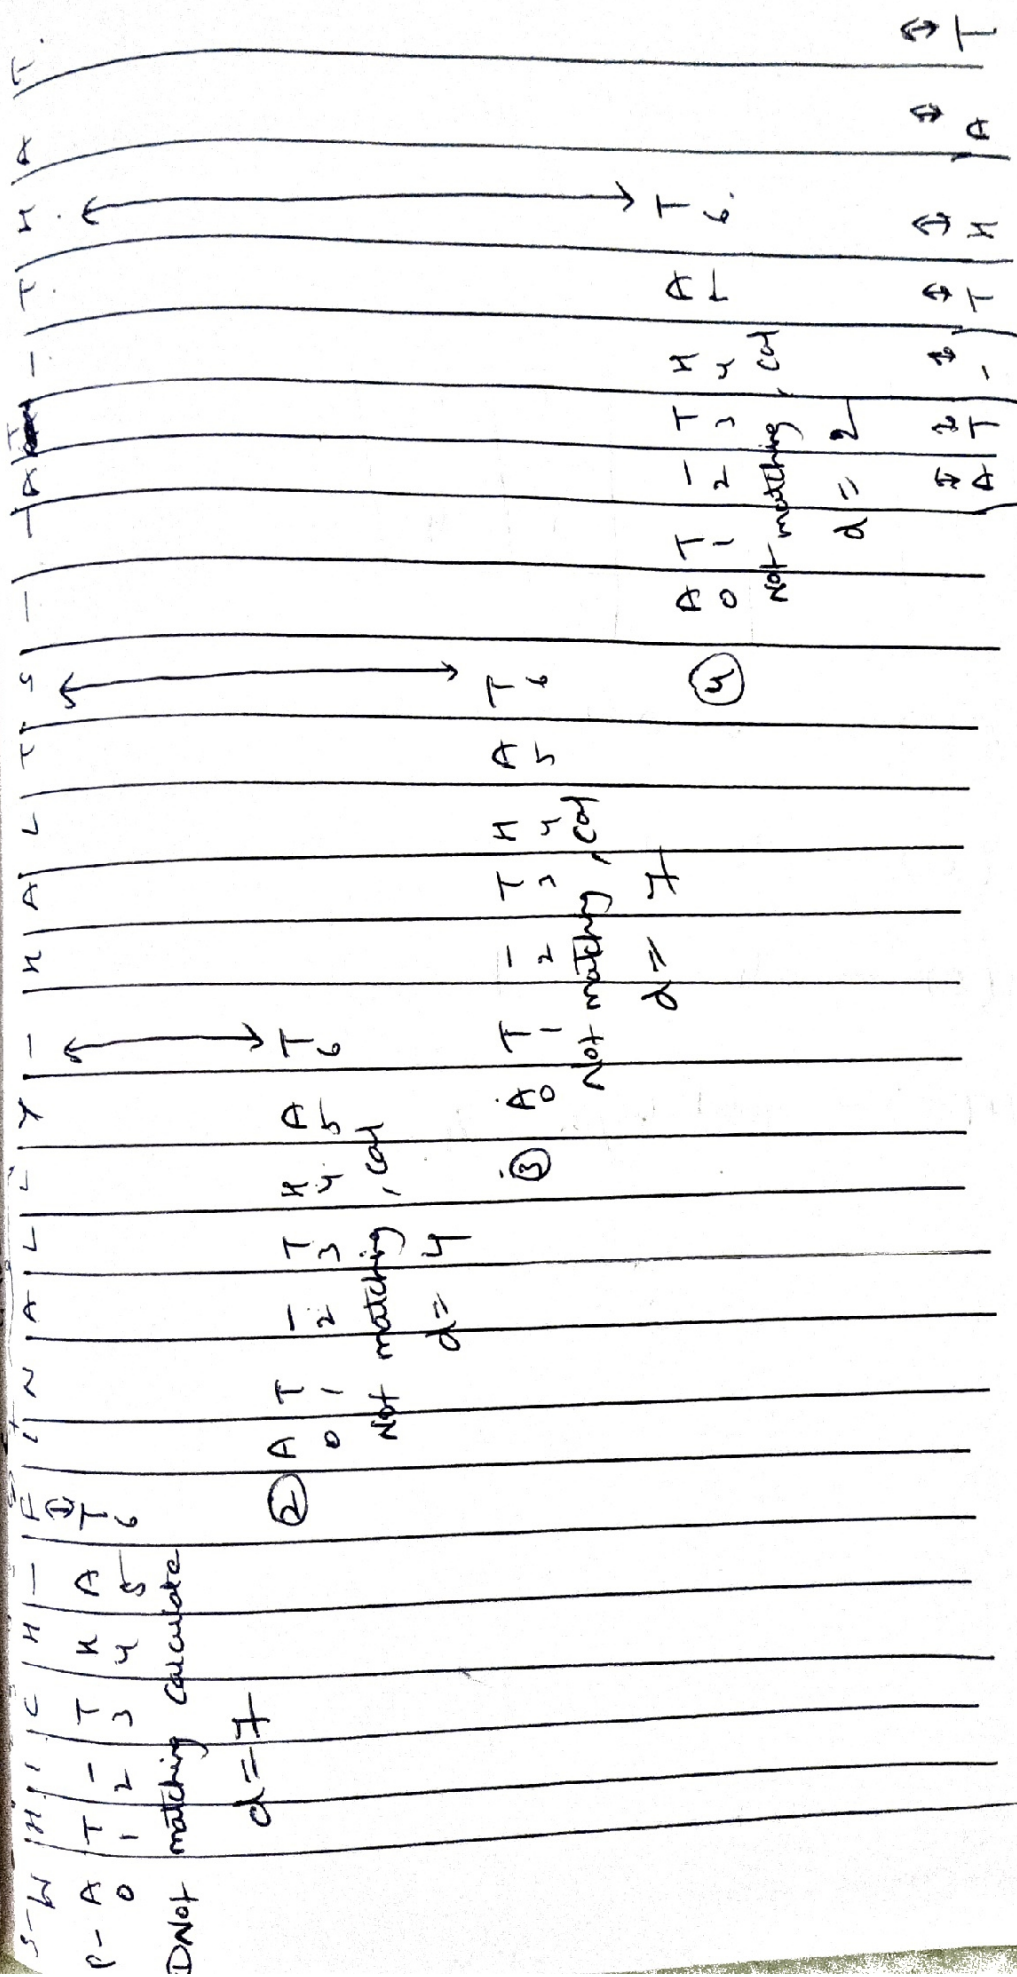 S- W | H | I | C | H | - | F | I | N | A | L | L | Y | - | H | A | L | T | S | - | - | A | T | - | T | H | A | T
P- A T - T H A T
0 1 2 3 4 5 6
① Not matching calculate
d = 7
② A T - T H A T
0 1 2 3 4 5 6
Not matching, cal
d = 4
③ A T - T H A T
0 1 2 3 4 5 6
Not matching, cal
d = 7
④ A T - T H A T
0 1 2 3 4 5 6
Not matching, cal
d = 2
A T - T H A T